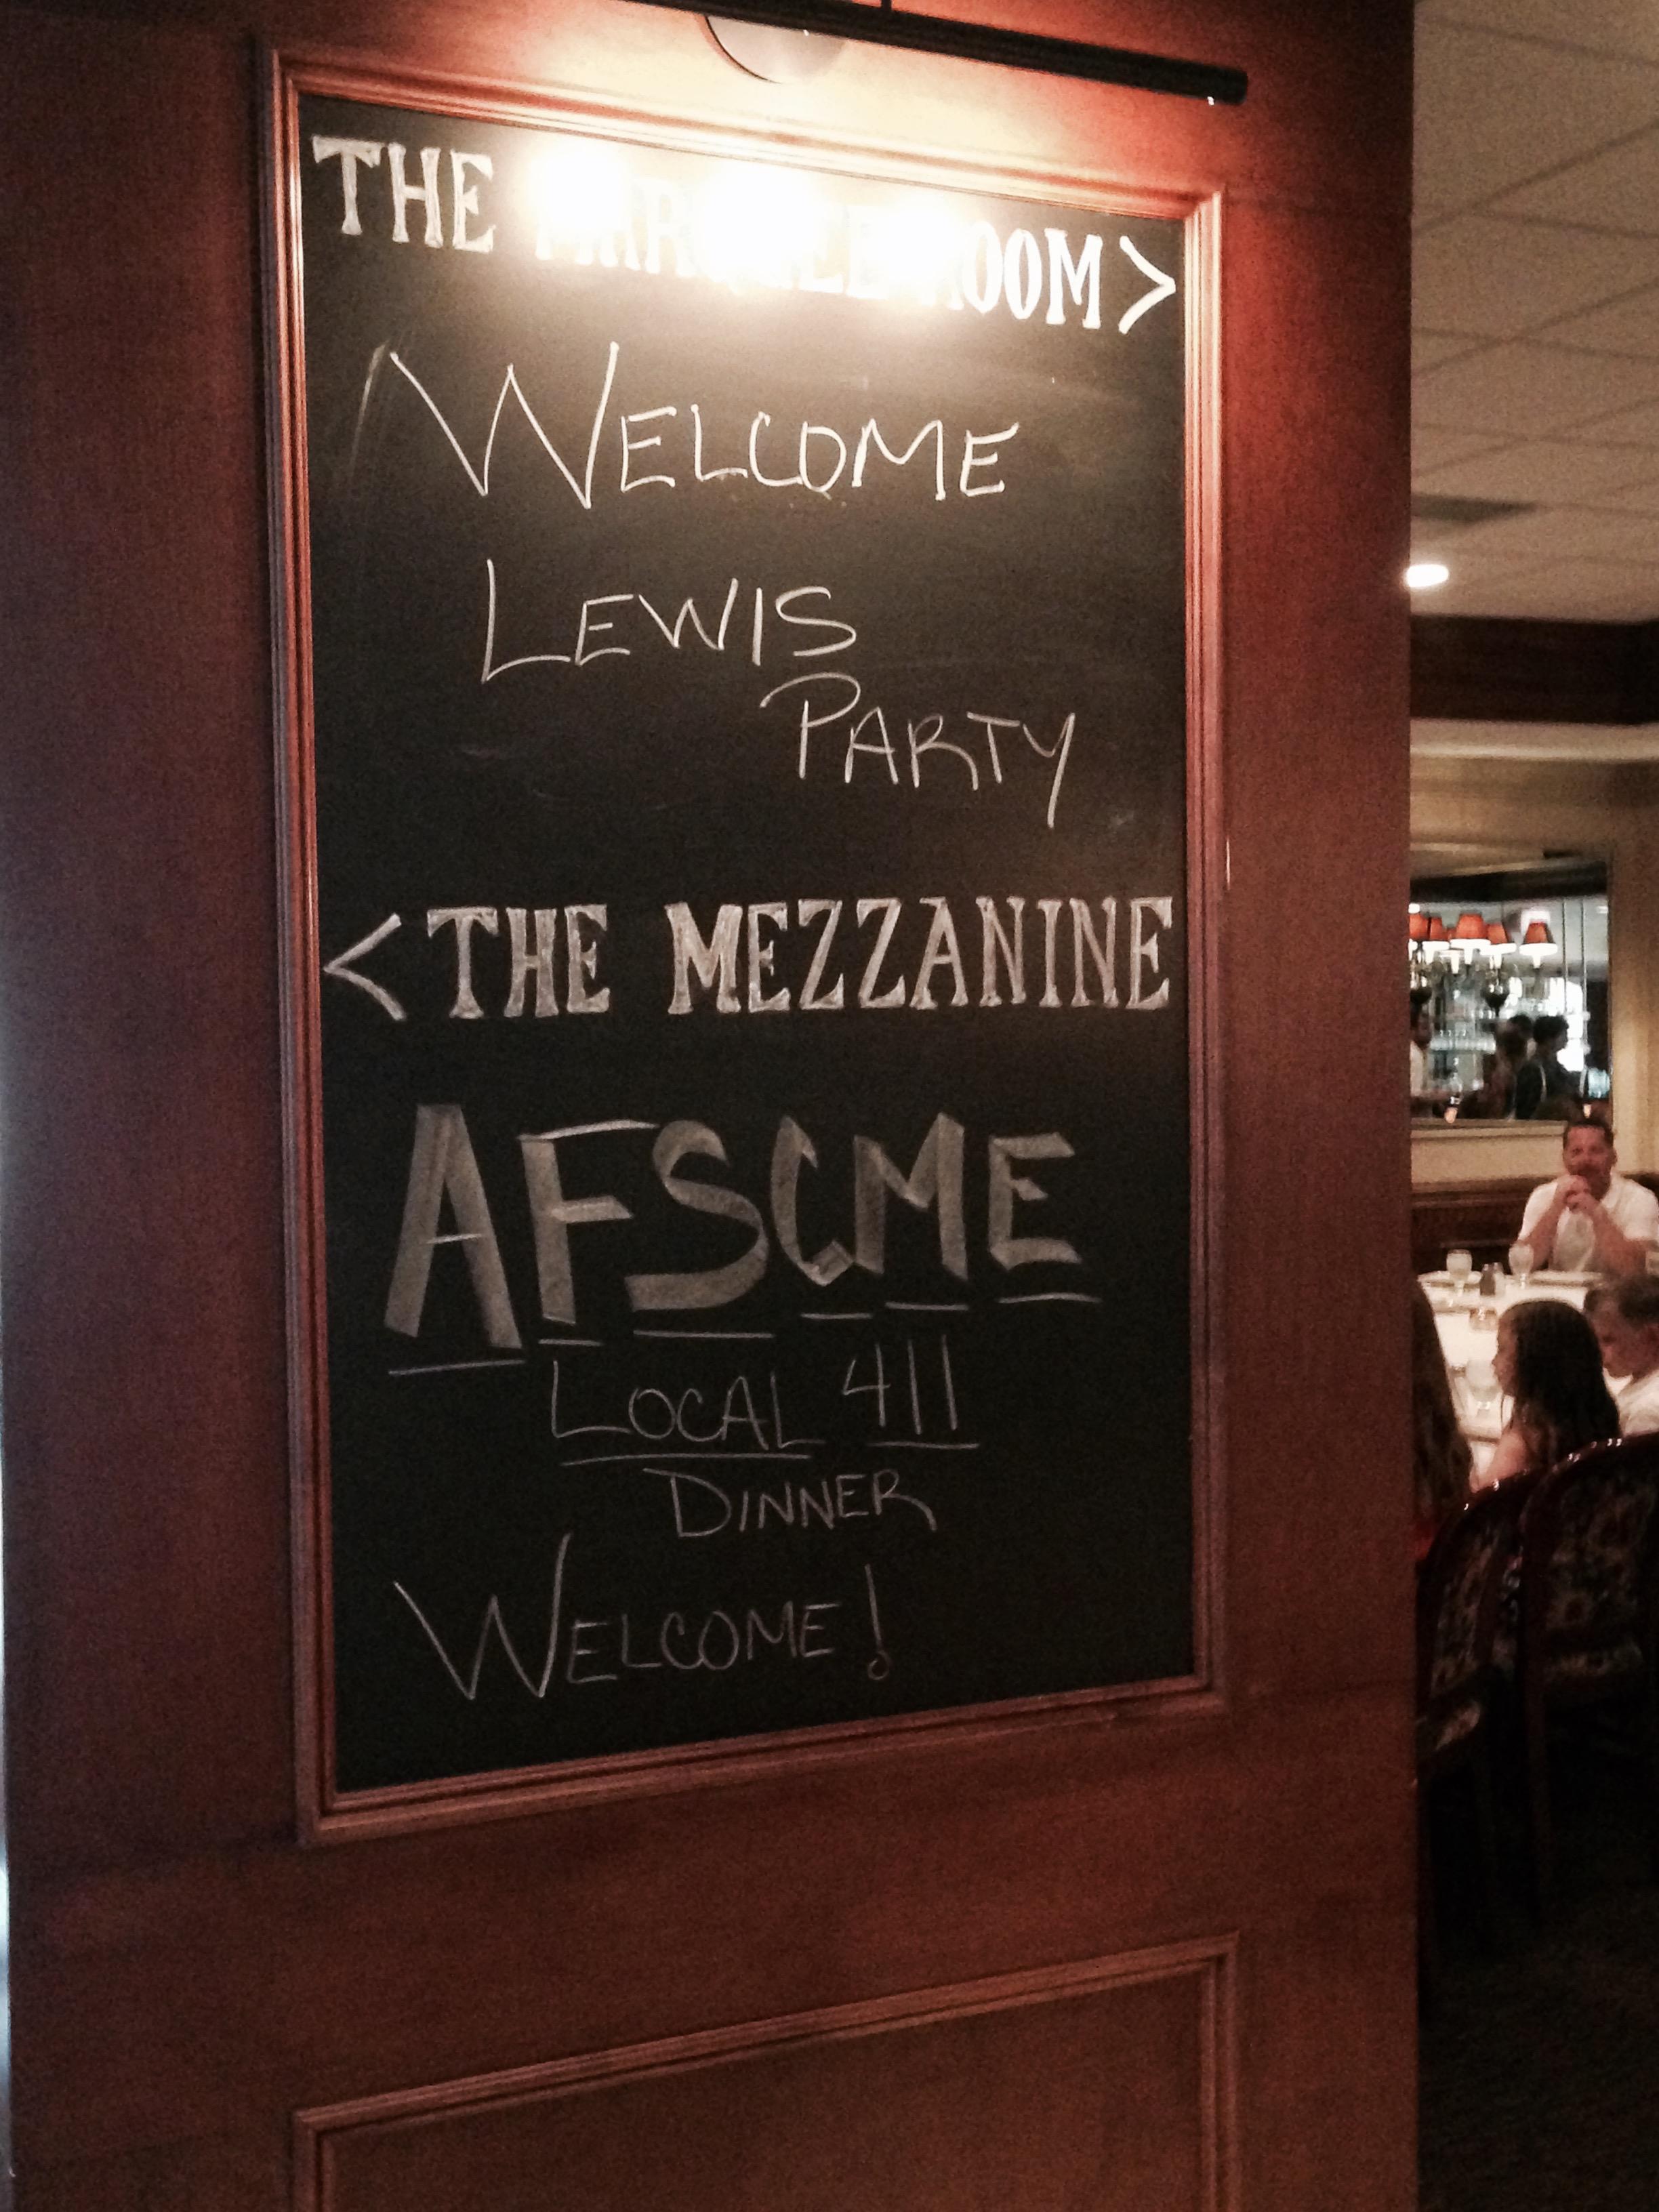 THE MARQUEE ROOM >
WELCOME
LEWIS
PARTY
< THE MEZZANINE
AFSCME
LOCAL 411
DINNER
WELCOME!